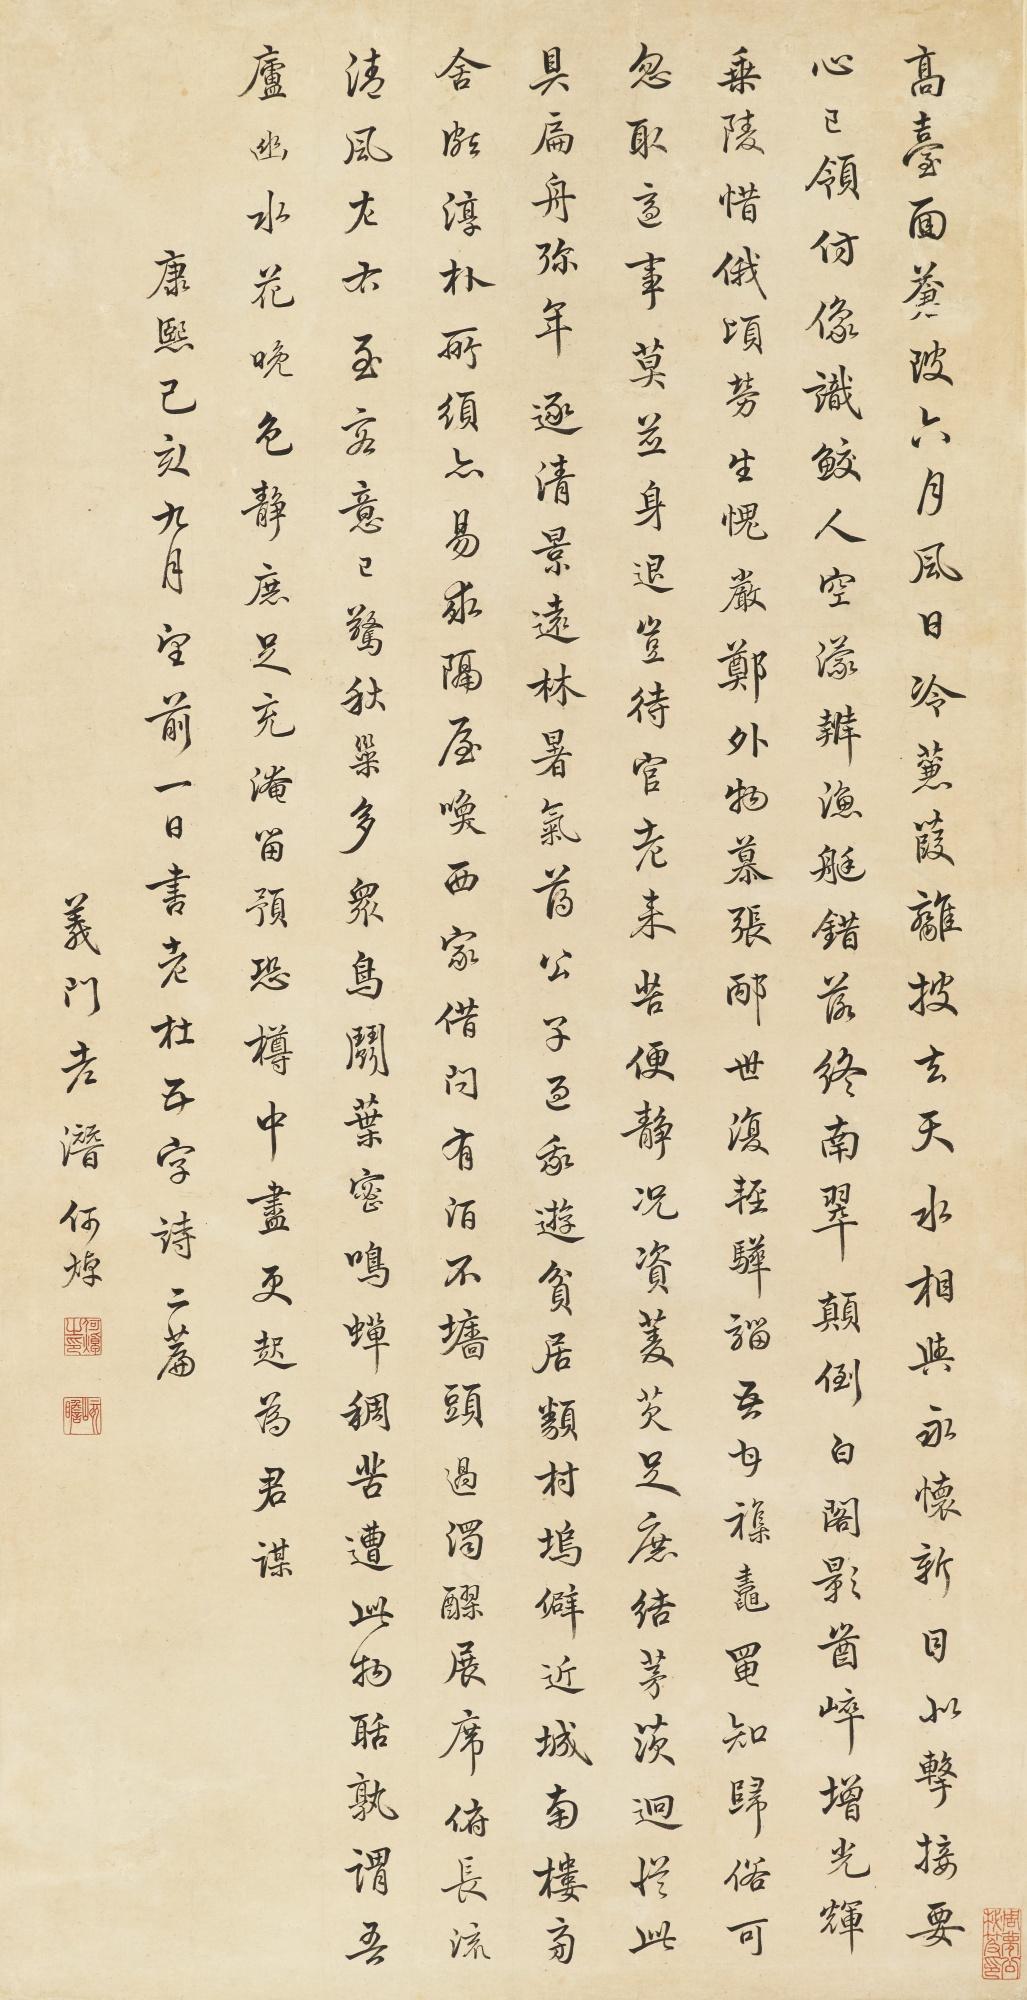 高臺面蒼陂六月風日冷蒹葭離披去天水相與永懷新目似擊接要
心已領仿像識鮫人空濛辨漁艇錯落終南翠顛倒白閣影崷崒增光輝
乗陵惜俄頃勞生愧嚴鄭外物慕張邴世復輕驊騮吾甘雜鼃黽知歸俗可
忽取適事莫並身退豈待官老來苦便靜况資菱芡足庶結茅茨迥從此
具扁舟弥年逐清景遠林暑氣薄公子過我遊貧居類村塢僻近城南樓旁
舍頗淳朴所須亦易求隔屋喚西家借問有酒不墻頭過濁醪展席俯長流
清風左右至客意已驚秋巢多衆鳥鬭葉密鳴蟬稠苦遭此物聒孰謂吾
廬幽水花晚色靜庶足充淹留預恐樽中盡更起為君謀
康熙己亥九月望前一日書老杜五字詩二篇
義門老潛何焯